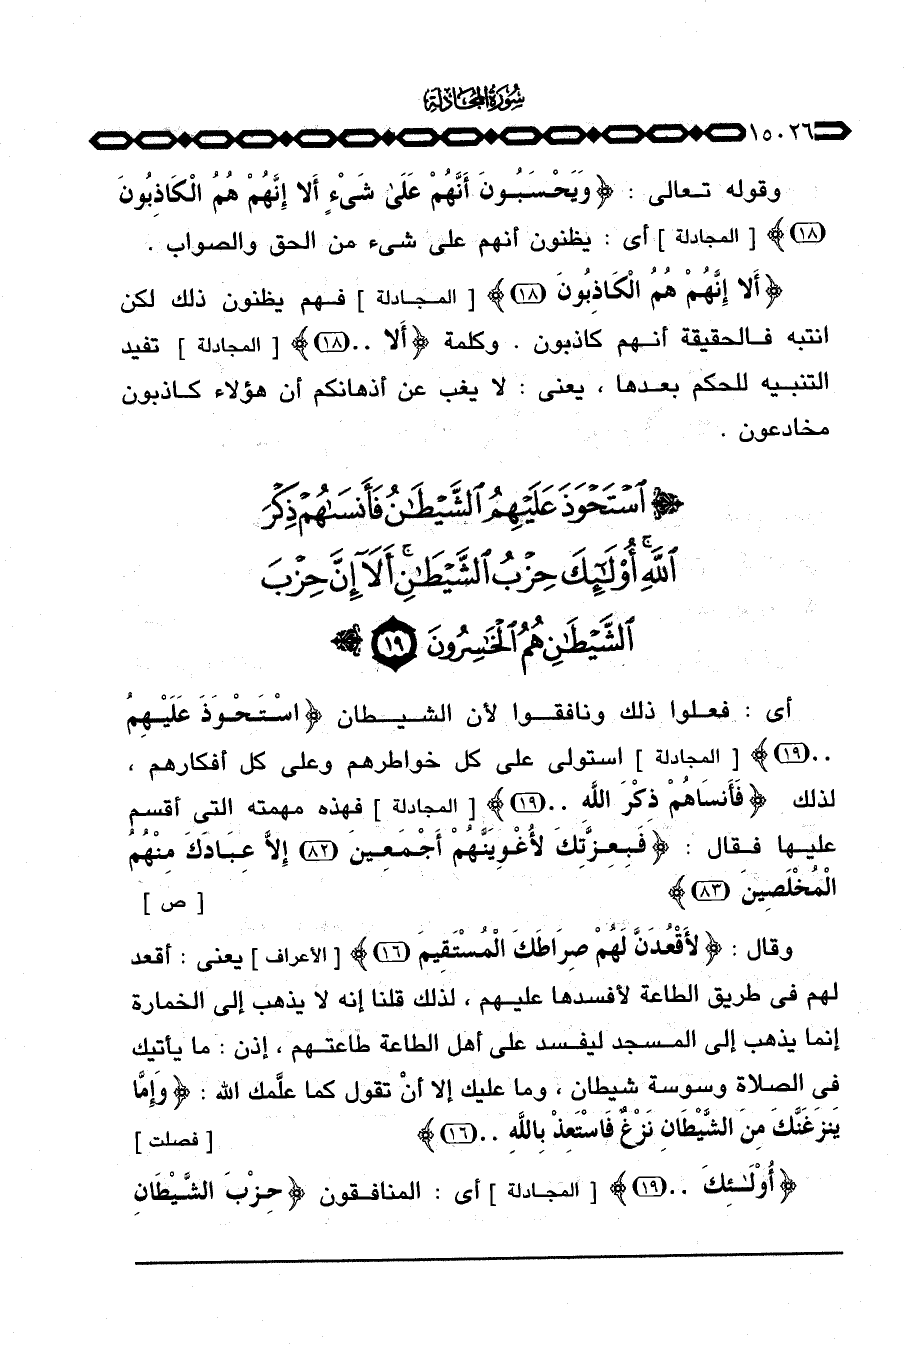 سورة المجادلة
١٥٠٢٦
وقوله تعالى : ﴿ وَيَحْسَبُونَ أَنَّهُمْ عَلَىٰ شَيْءٍ أَلا إِنَّهُمْ هُمُ الْكَاذِبُونَ
(١٨) ﴾ [ المجادلة ] أى : يظنون أنهم على شىء من الحق والصواب .
﴿ أَلا إِنَّهُمْ هُمُ الْكَاذِبُونَ (١٨) ﴾ [ المجادلة ] فهم يظنون ذلك لكن
انتبه فالحقيقة أنهم كاذبون . وكلمة ﴿ أَلا .. (١٨) ﴾ [ المجادلة ] تفيد
التنبيه للحكم بعدها ، يعنى : لا يغب عن أذهانكم أن هؤلاء كاذبون
مخادعون .
﴿ ٱسْتَحْوَذَ عَلَيْهِمُ ٱلشَّيْطَٰنُ فَأَنسَىٰهُمْ ذِكْرَ
ٱللَّهِ ۚ أُو۟لَٰٓئِكَ حِزْبُ ٱلشَّيْطَٰنِ ۚ أَلَآ إِنَّ حِزْبَ
ٱلشَّيْطَٰنِ هُمُ ٱلْخَٰسِرُونَ ١٩ ﴾
أى : فعلوا ذلك ونافقوا لأن الشيطان ﴿ اسْتَحْوَذَ عَلَيْهِمُ
.. (١٩) ﴾ [ المجادلة ] استولى على كل خواطرهم وعلى كل أفكارهم ،
لذلك ﴿ فَأَنسَاهُمْ ذِكْرَ اللَّهِ .. (١٩) ﴾ [ المجادلة ] فهذه مهمته التى أقسم
عليها فقال : ﴿ فَبِعِزَّتِكَ لأُغْوِيَنَّهُمْ أَجْمَعِينَ (٨٢) إِلاَّ عِبَادَكَ مِنْهُمُ
الْمُخْلَصِينَ (٨٣) ﴾ [ ص ]
وقال : ﴿ لأَقْعُدَنَّ لَهُمْ صِرَاطَكَ الْمُسْتَقِيمَ (١٦) ﴾ [ الأعراف ] يعنى : أقعد
لهم فى طريق الطاعة لأفسدها عليهم ، لذلك قلنا إنه لا يذهب إلى الخمارة
إنما يذهب إلى المسجد ليفسد على أهل الطاعة طاعتهم ، إذن : ما يأتيك
فى الصلاة وسوسة شيطان ، وما عليك إلا أنْ تقول كما علَّمك الله : ﴿ وَإِمَّا
يَنزَغَنَّكَ مِنَ الشَّيْطَانِ نَزْغٌ فَاسْتَعِذْ بِاللَّهِ .. (١٦) ﴾ [ فصلت ]
﴿ أُوْلَـٰئِكَ .. (١٩) ﴾ [ المجادلة ] أى : المنافقون ﴿ حِزْبَ الشَّيْطَانِ